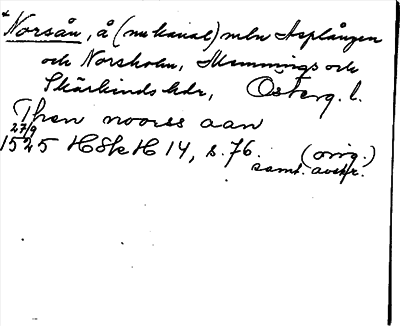 * Norsån, å (nu kanal) mln Asplången
och Norsholm, Memmings och
Skärkinds hdr, Österg. l.
Then noorss aan
27/9
1525 HSH 14, s. 76. (orig.)
samt. avskr.